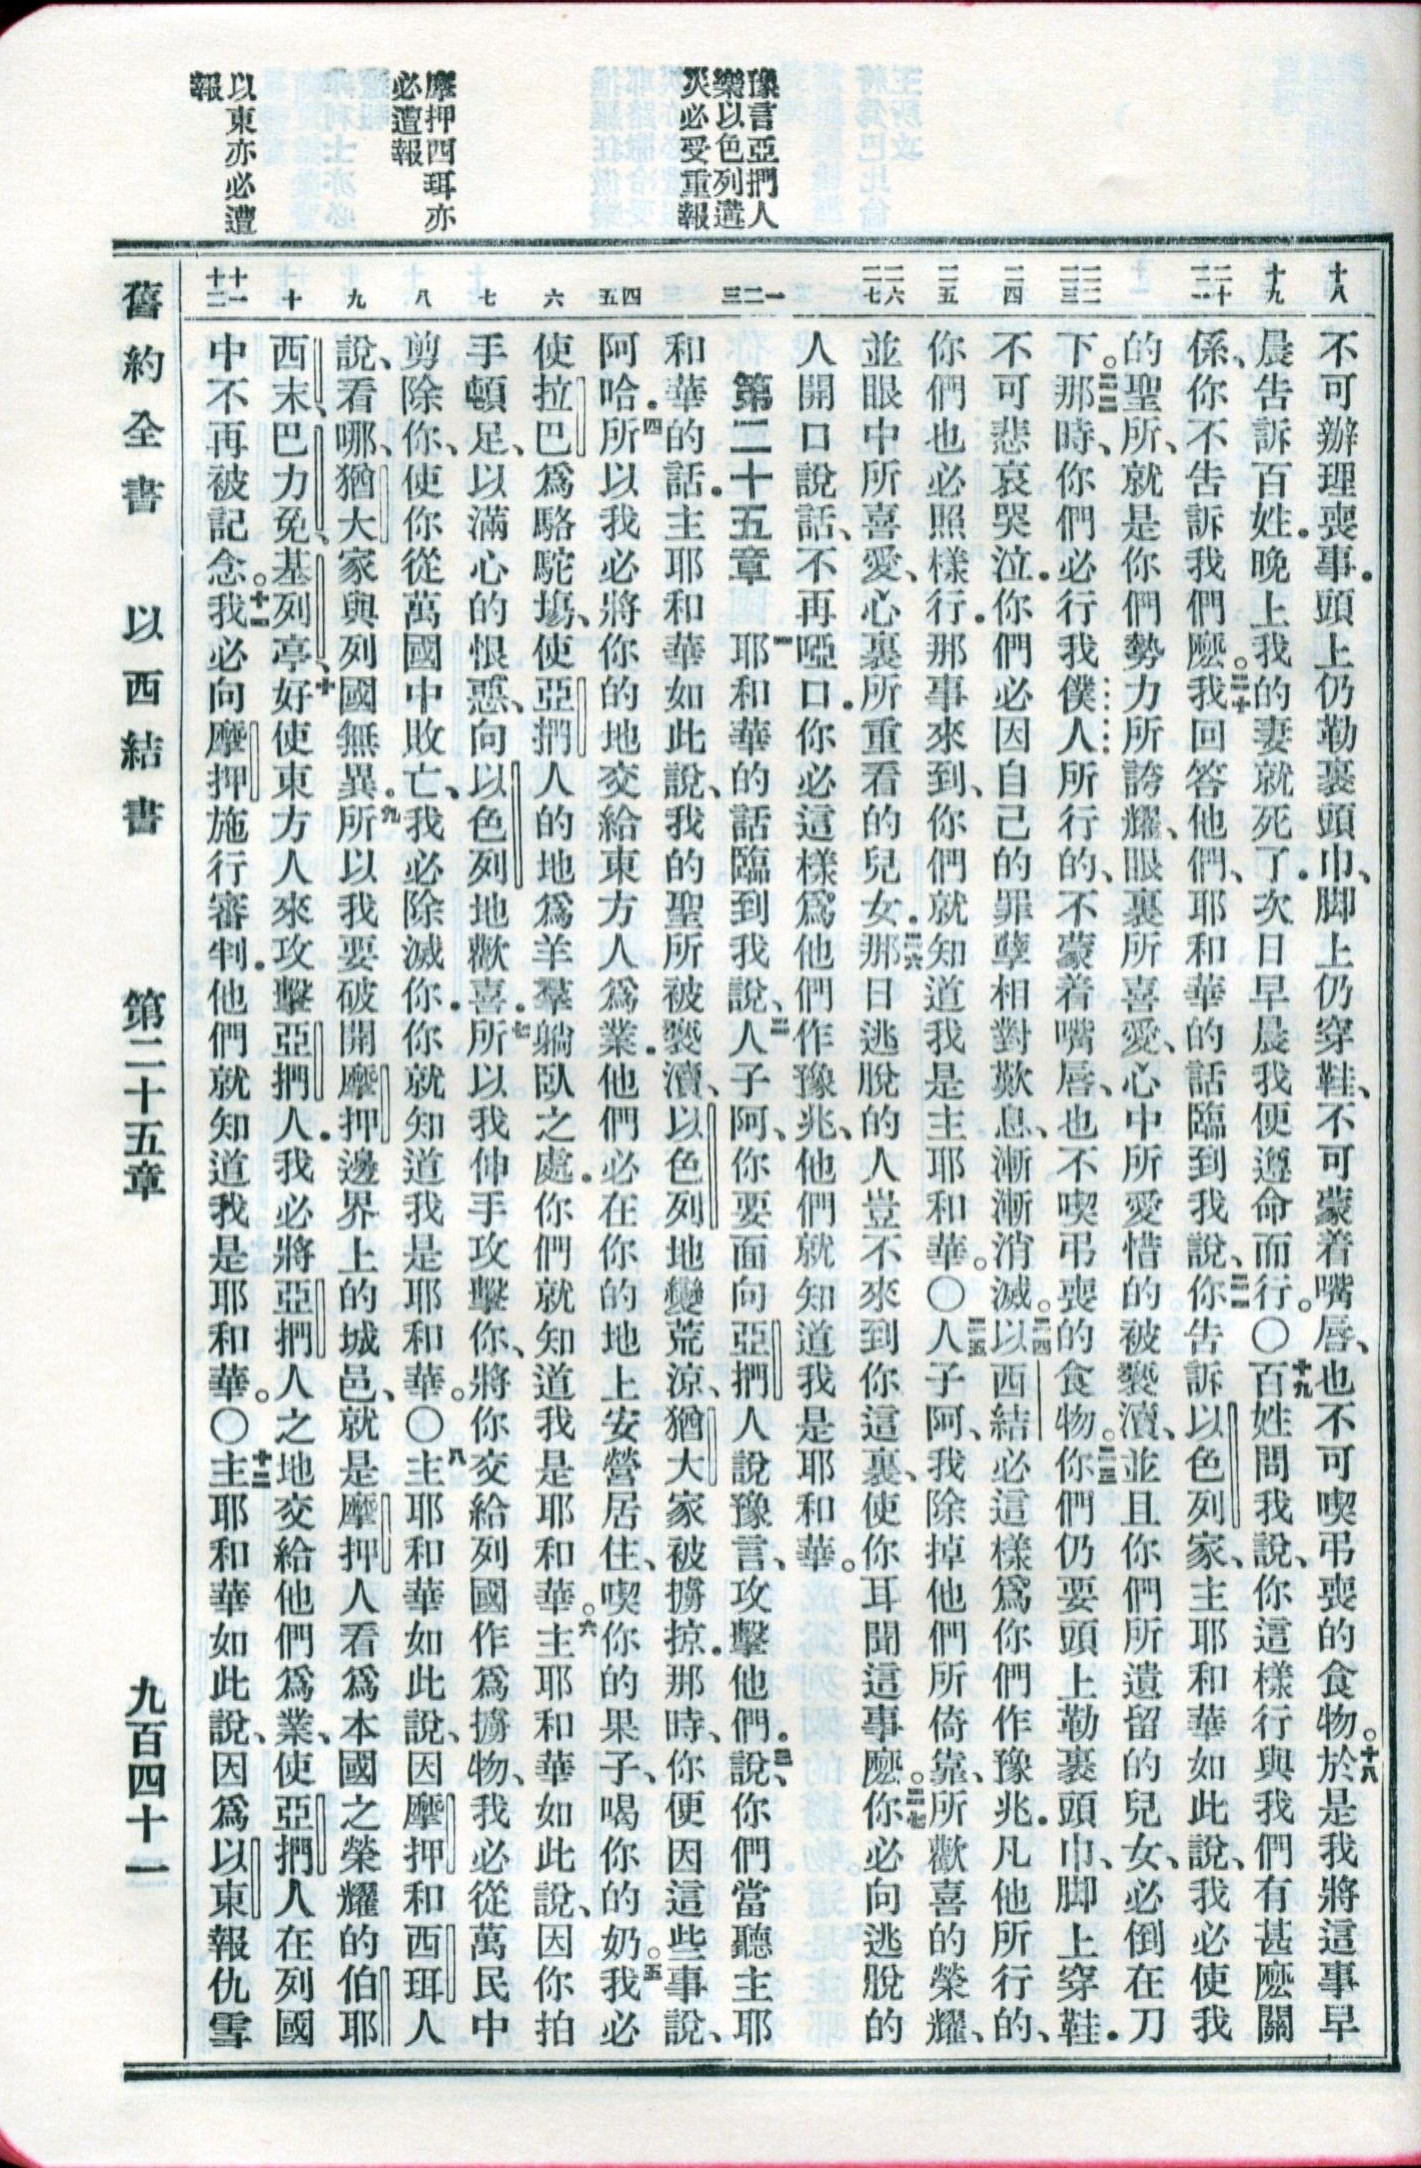 豫言亞捫人
樂以色列遘
災必受重報
摩押西珥亦
必遭報
以東亦必遭
報
十八
十九
二十 二一
二二 二三
二四
二五
二六 二七
一 二 三
四 五
六
七
八
九
十
十一 十二
不可辦理喪事.頭上仍勒裹頭巾、脚上仍穿鞋、不可蒙着嘴唇、也不可喫弔喪的食物。十八於是我將這事早
晨告訴百姓.晚上我的妻就死了.次日早晨我便遵命而行。〇十九百姓問我說、你這樣行與我們有甚麽關
係、你不告訴我們麽。二十我回答他們、耶和華的話臨到我說、二一你告訴以色列家、主耶和華如此說、我必使我
的聖所、就是你們勢力所誇耀、眼裏所喜愛、心中所愛惜的被褻瀆、並且你們所遺留的兒女、必倒在刀
下。二二那時、你們必行我僕人所行的、不蒙着嘴唇、也不喫弔喪的食物。二三你們仍要頭上勒裹頭巾、脚上穿鞋.
不可悲哀哭泣.你們必因自己的罪孽相對歎息、漸漸消滅。二四以西結必這樣爲你們作豫兆.凡他所行的、
你們也必照樣行.那事來到、你們就知道我是主耶和華。〇二五人子阿、我除掉他們所倚靠、所歡喜的榮耀、
並眼中所喜愛、心裏所重看的兒女.二六那日逃脫的人豈不來到你這裏、使你耳聞這事麽。二七你必向逃脫的
人開口說話、不再啞口.你必這樣爲他們作豫兆、他們就知道我是耶和華。
第二十五章 一耶和華的話臨到我說、二人子阿、你要面向亞捫人說豫言、攻擊他們.三說、你們當聽主耶
和華的話.主耶和華如此說、我的聖所被褻瀆、以色列地變荒涼、猶大家被擄掠.那時、你便因這些事說、
阿哈.四所以我必將你的地交給東方人爲業.他們必在你的地上安營居住、喫你的果子、喝你的奶。五我必
使拉巴爲駱駝場、使亞捫人的地爲羊羣躺臥之處.你們就知道我是耶和華。六主耶和華如此說、因你拍
手頓足、以滿心的恨惡、向以色列地歡喜.七所以我伸手攻擊你、將你交給列國作爲擄物、我必從萬民中
剪除你、使你從萬國中敗亡、我必除滅你.你就知道我是耶和華。〇八主耶和華如此說、因摩押和西珥人
說、看哪、猶大家與列國無異.九所以我要破開摩押邊界上的城邑、就是摩押人看爲本國之榮耀的伯耶
西末、巴力免、基列亭、十好使東方人來攻擊亞捫人.我必將亞捫人之地交給他們爲業、使亞捫人在列國
中不再被記念。十一我必向摩押施行審判.他們就知道我是耶和華。〇十二主耶和華如此說、因爲以東報仇雪
舊約全書 以西結書 第二十五章 九百四十一